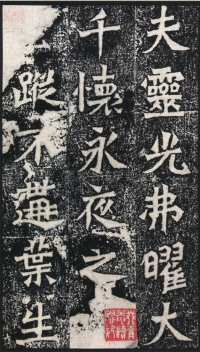 夫靈光弗曜大
千懷永夜之
蹤不遘葉生